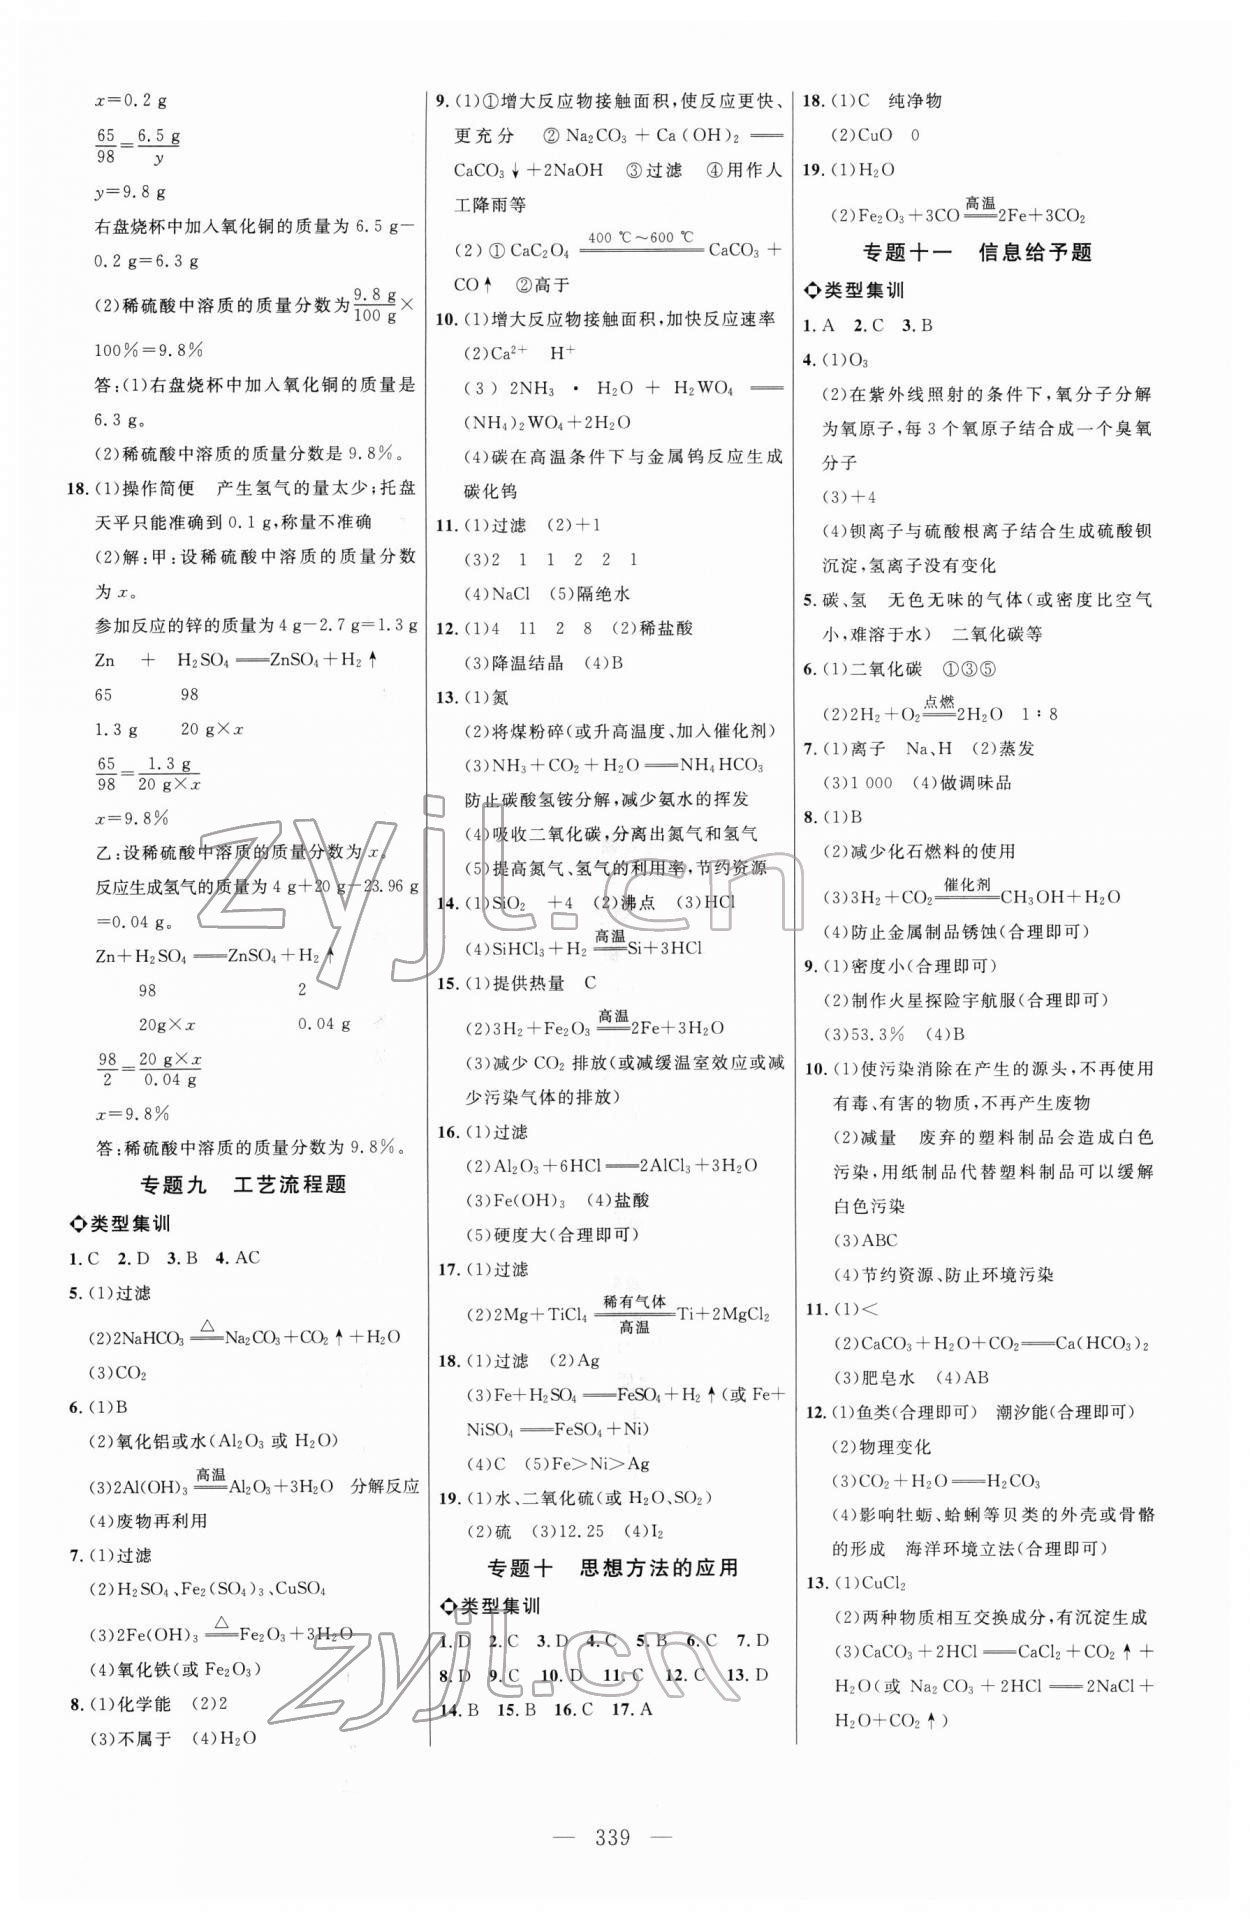 x=0.2 g
65/98=6.5 g/y
y=9.8 g
右盘烧杯中加入氧化铜的质量为 6.5 g-
0.2 g=6.3 g
(2)稀硫酸中溶质的质量分数为9.8 g/100 g×
100%=9.8%
答:(1)右盘烧杯中加入氧化铜的质量是
6.3 g。
(2)稀硫酸中溶质的质量分数是 9.8%。
18. (1)操作简便　产生氢气的量太少;托盘
天平只能准确到 0.1 g,称量不准确
(2)解:甲:设稀硫酸中溶质的质量分数
为 x。
参加反应的锌的质量为 4 g-2.7 g=1.3 g
Zn + H₂SO₄══ZnSO₄+H₂↑
65　98
1.3 g　20 g×x
65/98=1.3 g/20 g×x
x=9.8%
乙:设稀硫酸中溶质的质量分数为 x。
反应生成氢气的质量为 4 g+20 g-23.96 g
=0.04 g。
Zn+H₂SO₄══ZnSO₄+H₂↑
98　2
20g×x　0.04 g
98/2=20 g×x/0.04 g
x=9.8%
答:稀硫酸中溶质的质量分数为 9.8%。
专题九　工艺流程题
类型集训
1. C 2. D 3. B 4. AC
5. (1)过滤
(2)2NaHCO₃ △══ Na₂CO₃+CO₂↑+H₂O
(3)CO₂
6. (1)B
(2)氧化铝或水(Al₂O₃ 或 H₂O)
(3)2Al(OH)₃ 高温══ Al₂O₃+3H₂O　分解反应
(4)废物再利用
7. (1)过滤
(2)H₂SO₄、Fe₂(SO₄)₃、CuSO₄
(3)2Fe(OH)₃ △══ Fe₂O₃+3H₂O
(4)氧化铁(或 Fe₂O₃)
8. (1)化学能　(2)2
(3)不属于　(4)H₂O
9. (1)①增大反应物接触面积,使反应更快、
更充分　② Na₂CO₃ + Ca(OH)₂ ══
CaCO₃↓+2NaOH　③过滤　④用作人
工降雨等
(2) ① CaC₂O₄ 400 ℃～600 ℃══ CaCO₃ +
CO↑　②高于
10. (1)增大反应物接触面积,加快反应速率
(2)Ca²⁺　H⁺
(3) 2NH₃ · H₂O + H₂WO₄ ══
(NH₄)₂WO₄+2H₂O
(4)碳在高温条件下与金属钨反应生成
碳化钨
11. (1)过滤　(2)+1
(3)2　1　1　2　2　1
(4)NaCl　(5)隔绝水
12. (1)4　11　2　8　(2)稀盐酸
(3)降温结晶　(4)B
13. (1)氮
(2)将煤粉碎(或升高温度、加入催化剂)
(3)NH₃+CO₂+H₂O══NH₄HCO₃
防止碳酸氢铵分解,减少氨水的挥发
(4)吸收二氧化碳,分离出氮气和氢气
(5)提高氮气、氢气的利用率,节约资源
14. (1)SiO₂　+4　(2)沸点　(3)HCl
(4)SiHCl₃+H₂ 高温══ Si+3HCl
15. (1)提供热量　C
(2)3H₂+Fe₂O₃ 高温══ 2Fe+3H₂O
(3)减少 CO₂ 排放(或减缓温室效应或减
少污染气体的排放)
16. (1)过滤
(2)Al₂O₃+6HCl══2AlCl₃+3H₂O
(3)Fe(OH)₃　(4)盐酸
(5)硬度大(合理即可)
17. (1)过滤
(2)2Mg+TiCl₄ 稀有气体══高温 Ti+2MgCl₂
18. (1)过滤　(2)Ag
(3)Fe+H₂SO₄══FeSO₄+H₂↑(或 Fe+
NiSO₄══FeSO₄+Ni)
(4)C　(5)Fe>Ni>Ag
19. (1)水、二氧化硫(或 H₂O、SO₂)
(2)硫　(3)12.25　(4)I₂
专题十　思想方法的应用
类型集训
1. D 2. C 3. D 4. C 5. B 6. C 7. D
8. D 9. C 10. D 11. C 12. C 13. D
14. B 15. B 16. C 17. A
18. (1)C　纯净物
(2)CuO　0
19. (1)H₂O
(2)Fe₂O₃+3CO 高温══ 2Fe+3CO₂
专题十一　信息给予题
类型集训
1. A 2. C 3. B
4. (1)O₃
(2)在紫外线照射的条件下,氧分子分解
为氧原子,每 3 个氧原子结合成一个臭氧
分子
(3)+4
(4)钡离子与硫酸根离子结合生成硫酸钡
沉淀,氢离子没有变化
5. 碳、氢　无色无味的气体(或密度比空气
小,难溶于水)　二氧化碳等
6. (1)二氧化碳　①③⑤
(2)2H₂+O₂ 点燃══ 2H₂O　1∶8
7. (1)离子　Na、H　(2)蒸发
(3)1 000　(4)做调味品
8. (1)B
(2)减少化石燃料的使用
(3)3H₂+CO₂ 催化剂══ CH₃OH+H₂O
(4)防止金属制品锈蚀(合理即可)
9. (1)密度小(合理即可)
(2)制作火星探险宇航服(合理即可)
(3)53.3%　(4)B
10. (1)使污染消除在产生的源头,不再使用
有毒、有害的物质,不再产生废物
(2)减量　废弃的塑料制品会造成白色
污染,用纸制品代替塑料制品可以缓解
白色污染
(3)ABC
(4)节约资源、防止环境污染
11. (1)<
(2)CaCO₃+H₂O+CO₂══Ca(HCO₃)₂
(3)肥皂水　(4)AB
12. (1)鱼类(合理即可)　潮汐能(合理即可)
(2)物理变化
(3)CO₂+H₂O══H₂CO₃
(4)影响牡蛎、蛤蜊等贝类的外壳或骨骼
的形成　海洋环境立法(合理即可)
13. (1)CuCl₂
(2)两种物质相互交换成分,有沉淀生成
(3)CaCO₃+2HCl══CaCl₂+CO₂↑+
H₂O(或 Na₂CO₃+2HCl══2NaCl+
H₂O+CO₂↑)
— 339 —
zyjl.cn
zyjl.cn